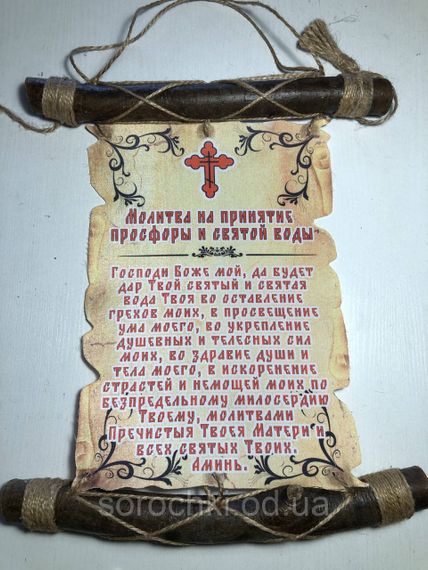 Молитва на принятие
просфоры и святой воды
Господи Боже мой, да будет
дар Твой святый и святая
вода Твоя во оставление
грехов моих, в просвещение
ума моего, во укрепление
душевных и телесных сил
моих, во здравие души и
тела моего, в искоренение
страстей и немощей моих по
безпредельному милосердию
Твоему, молитвами
Пречистыя Твоея Матери и
всех святых Твоих.
Аминь.
sorochki.od.ua